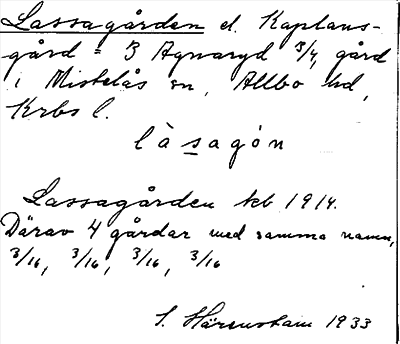 Lassagården el. Kaplans-
gård = 3 Agnaryd 3/4, gård
i Mistelås sn, Allbo hd,
Krbs l.
là sagón
Lassagården kb 1914.
Därav 4 gårdar med samma namn,
3/16, 3/16, 3/16, 3/16
S. Härenstam 1933